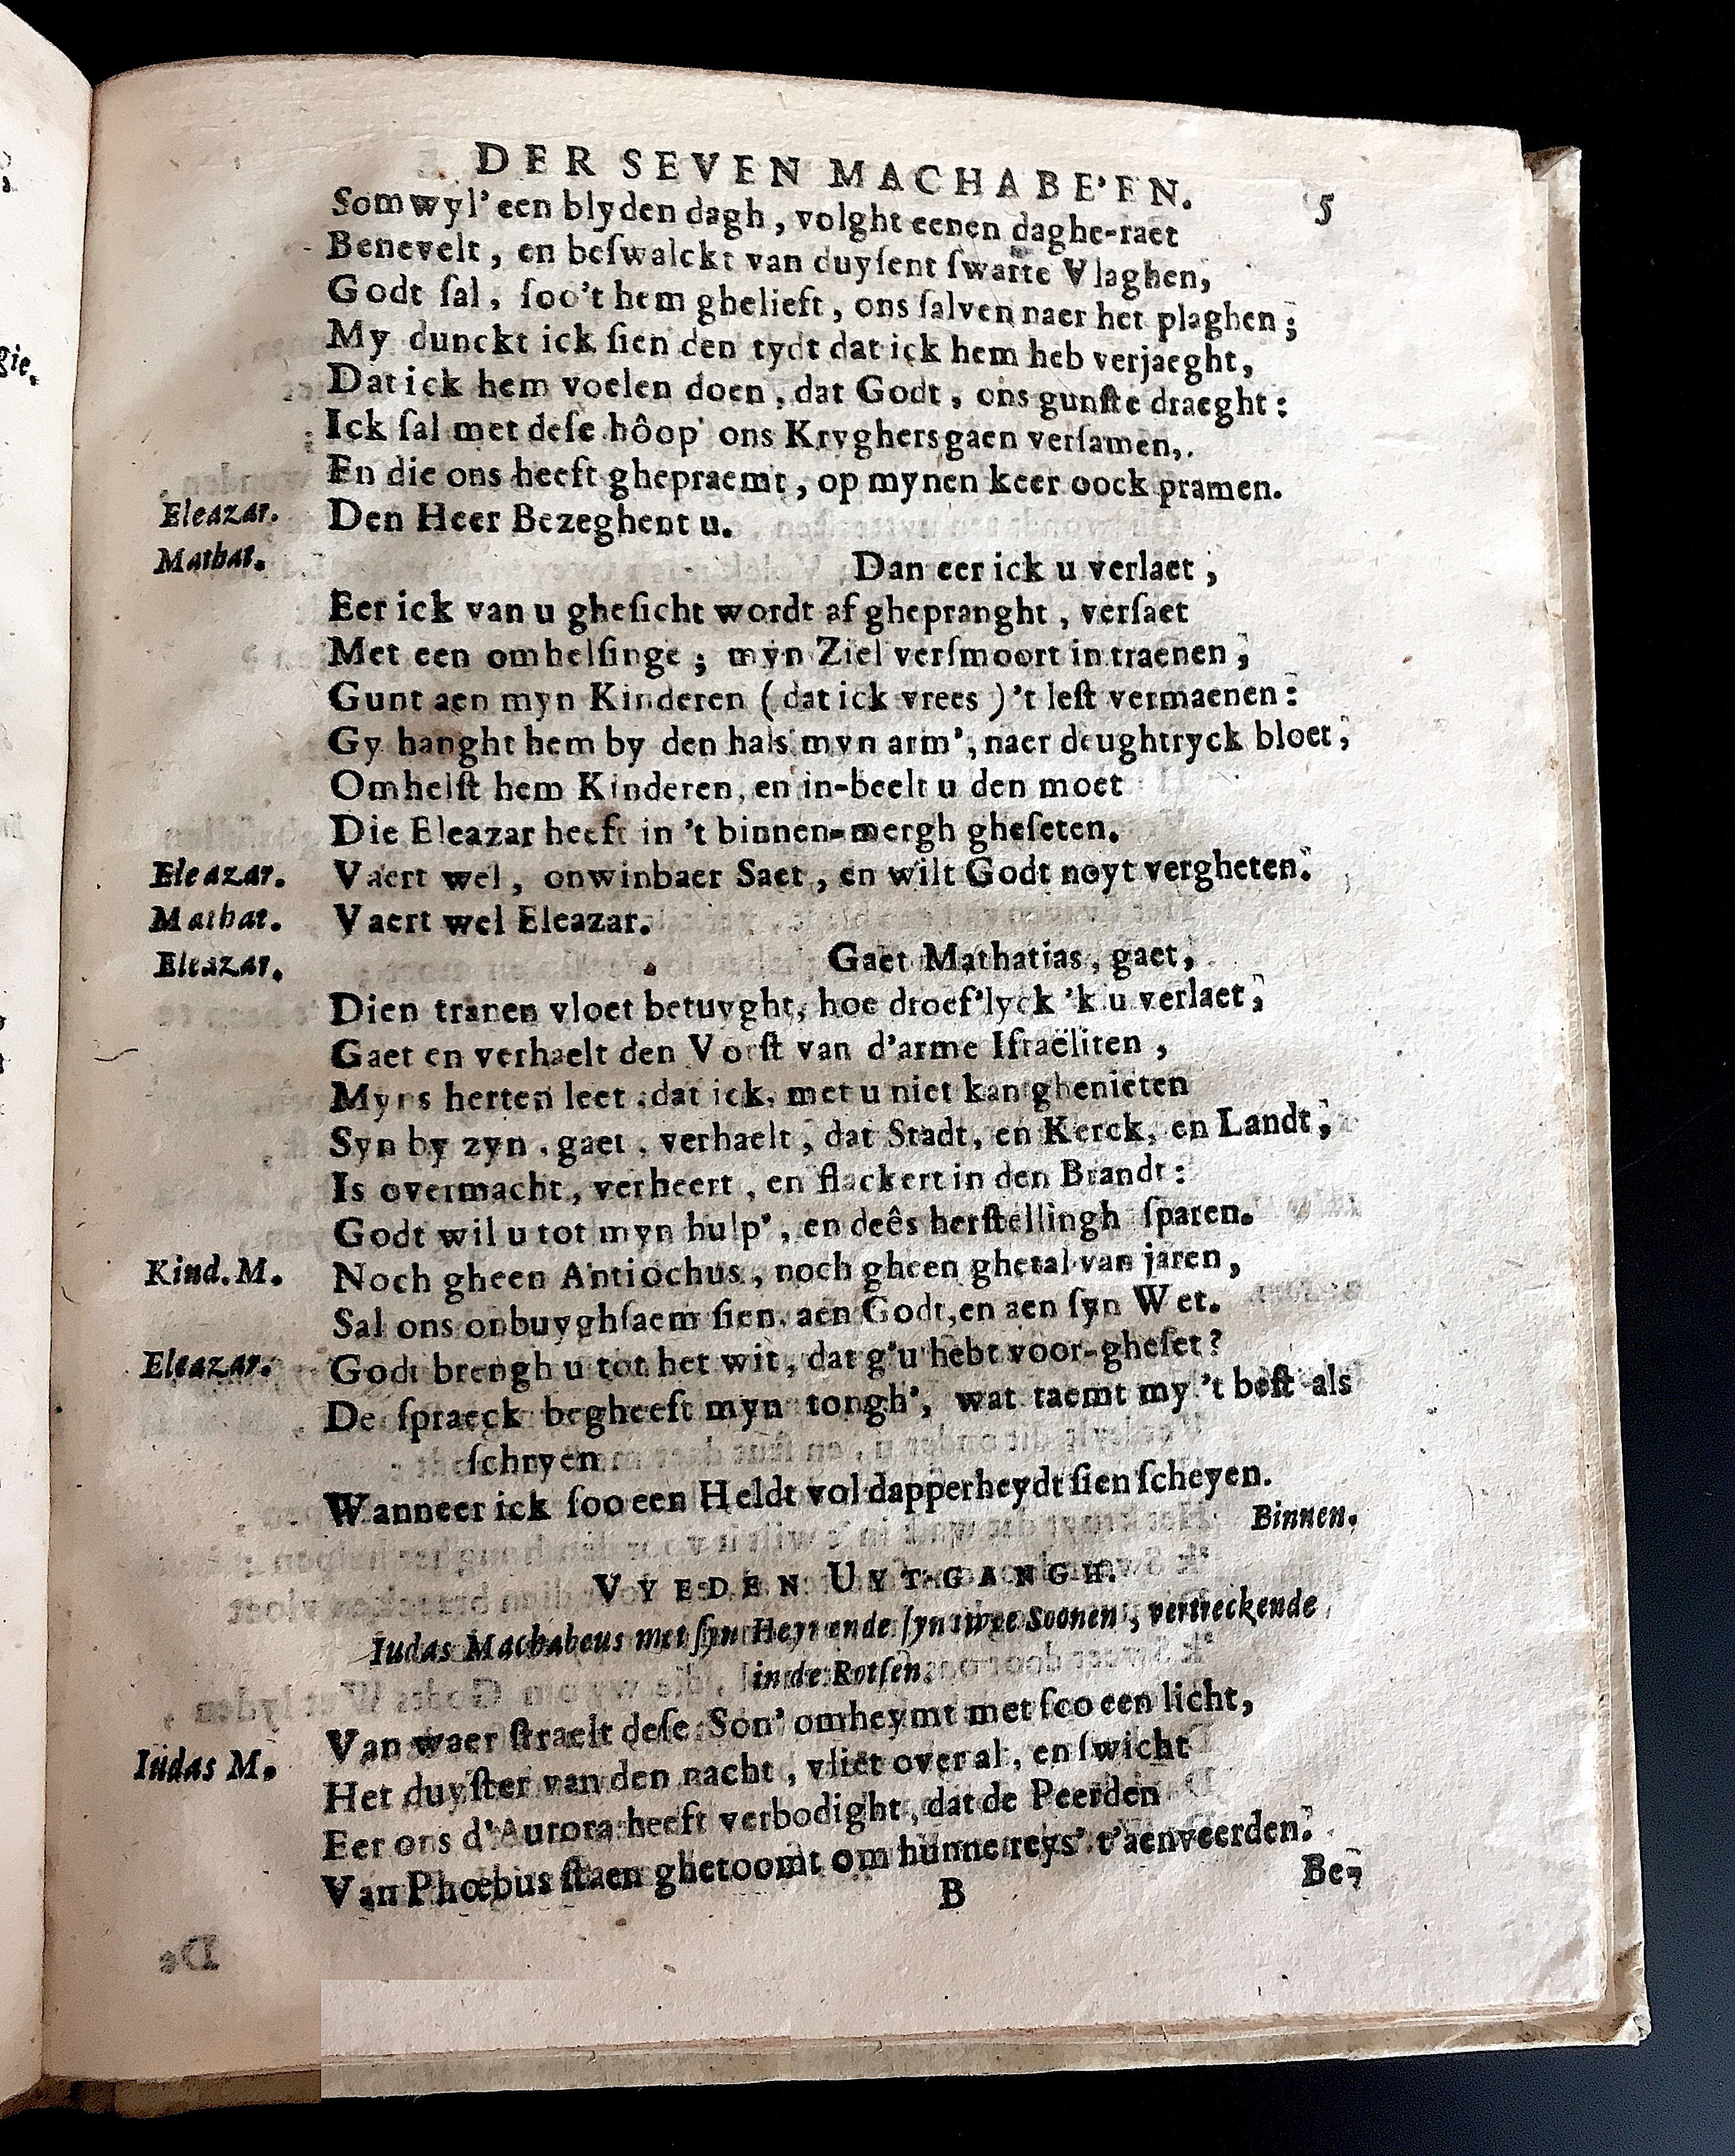 DER SEVEN MACHABE'EN. 5
Somwyl' een blyden dagh, volght eenen daghe-raet
Benevelt, en beſwalckt van duyſent ſwarte Vlaghen,
Godt ſal, ſoo't hem ghelieft, ons ſalven naer het plaghen;
My dunckt ick ſien den tydt dat ick hem heb verjaeght,
Dat ick hem voelen doen, dat Godt, ons gunſte draeght:
Ick ſal met deſe hôop' ons Kryghers gaen verſamen,.
En die ons heeft ghepraemt, op mynen keer oock pramen.
Eleazar. Den Heer Bezeghent u.
Mathat. Dan eer ick u verlaet,
Eer ick van u gheſicht wordt af ghepranght, verſaet
Met een omhelſinge; myn Ziel verſmoort in traenen,
Gunt aen myn Kinderen (dat ick vrees) 't leſt vermaenen:
Gy hanght hem by den hals myn arm', naer deughtryck bloet,
Omhelſt hem Kinderen, en in-beelt u den moet
Die Eleazar heeft in 't binnen-mergh gheſeten.
Eleazar. Vaert wel, onwinbaer Saet, en wilt Godt noyt vergheten.
Mathat. Vaert wel Eleazar.
Eleazar. Gaet Mathatias, gaet,
Dien tranen vloet betuyght, hoe droef'lyck 'k u verlaet,
Gaet en verhaelt den Vorſt van d'arme Iſraëliten,
Myns herten leet, dat ick, met u niet kan ghenieten
Syn by zyn, gaet, verhaelt, dat Stadt, en Kerck, en Landt,
Is overmacht, verheert, en flackert in den Brandt:
Godt wil u tot myn hulp', en deês herſtellingh ſparen.
Kind. M. Noch gheen Antiochus, noch gheen ghetal van jaren,
Sal ons onbuyghſaem ſien, aen Godt, en aen ſyn Wet.
Eleazar. Godt brengh u tot het wit, dat g'u hebt voor-gheſet?
De ſpraeck begheeft myn tongh', wat taemt my 't beſt als
ſchryen
Wanneer ick ſoo een Heldt vol dapperheydt ſien ſcheyen.
Binnen.
VYFDEN UYT-GANGH.
Iudas Machabeus met ſyn Heyr ende ſyn twee Soonen, vertreckende
in de Rotſen.
Van waer ſtraelt deſe Son' omheymt met ſoo een licht,
Iudas M. Het duyſter van den nacht, vliet over al, en ſwicht
Eer ons d'Aurora heeft verbodight, dat de Peerden
Van Phœbus ſtaen ghetoomt om hunne reys' t'aenveerden.
B Be-